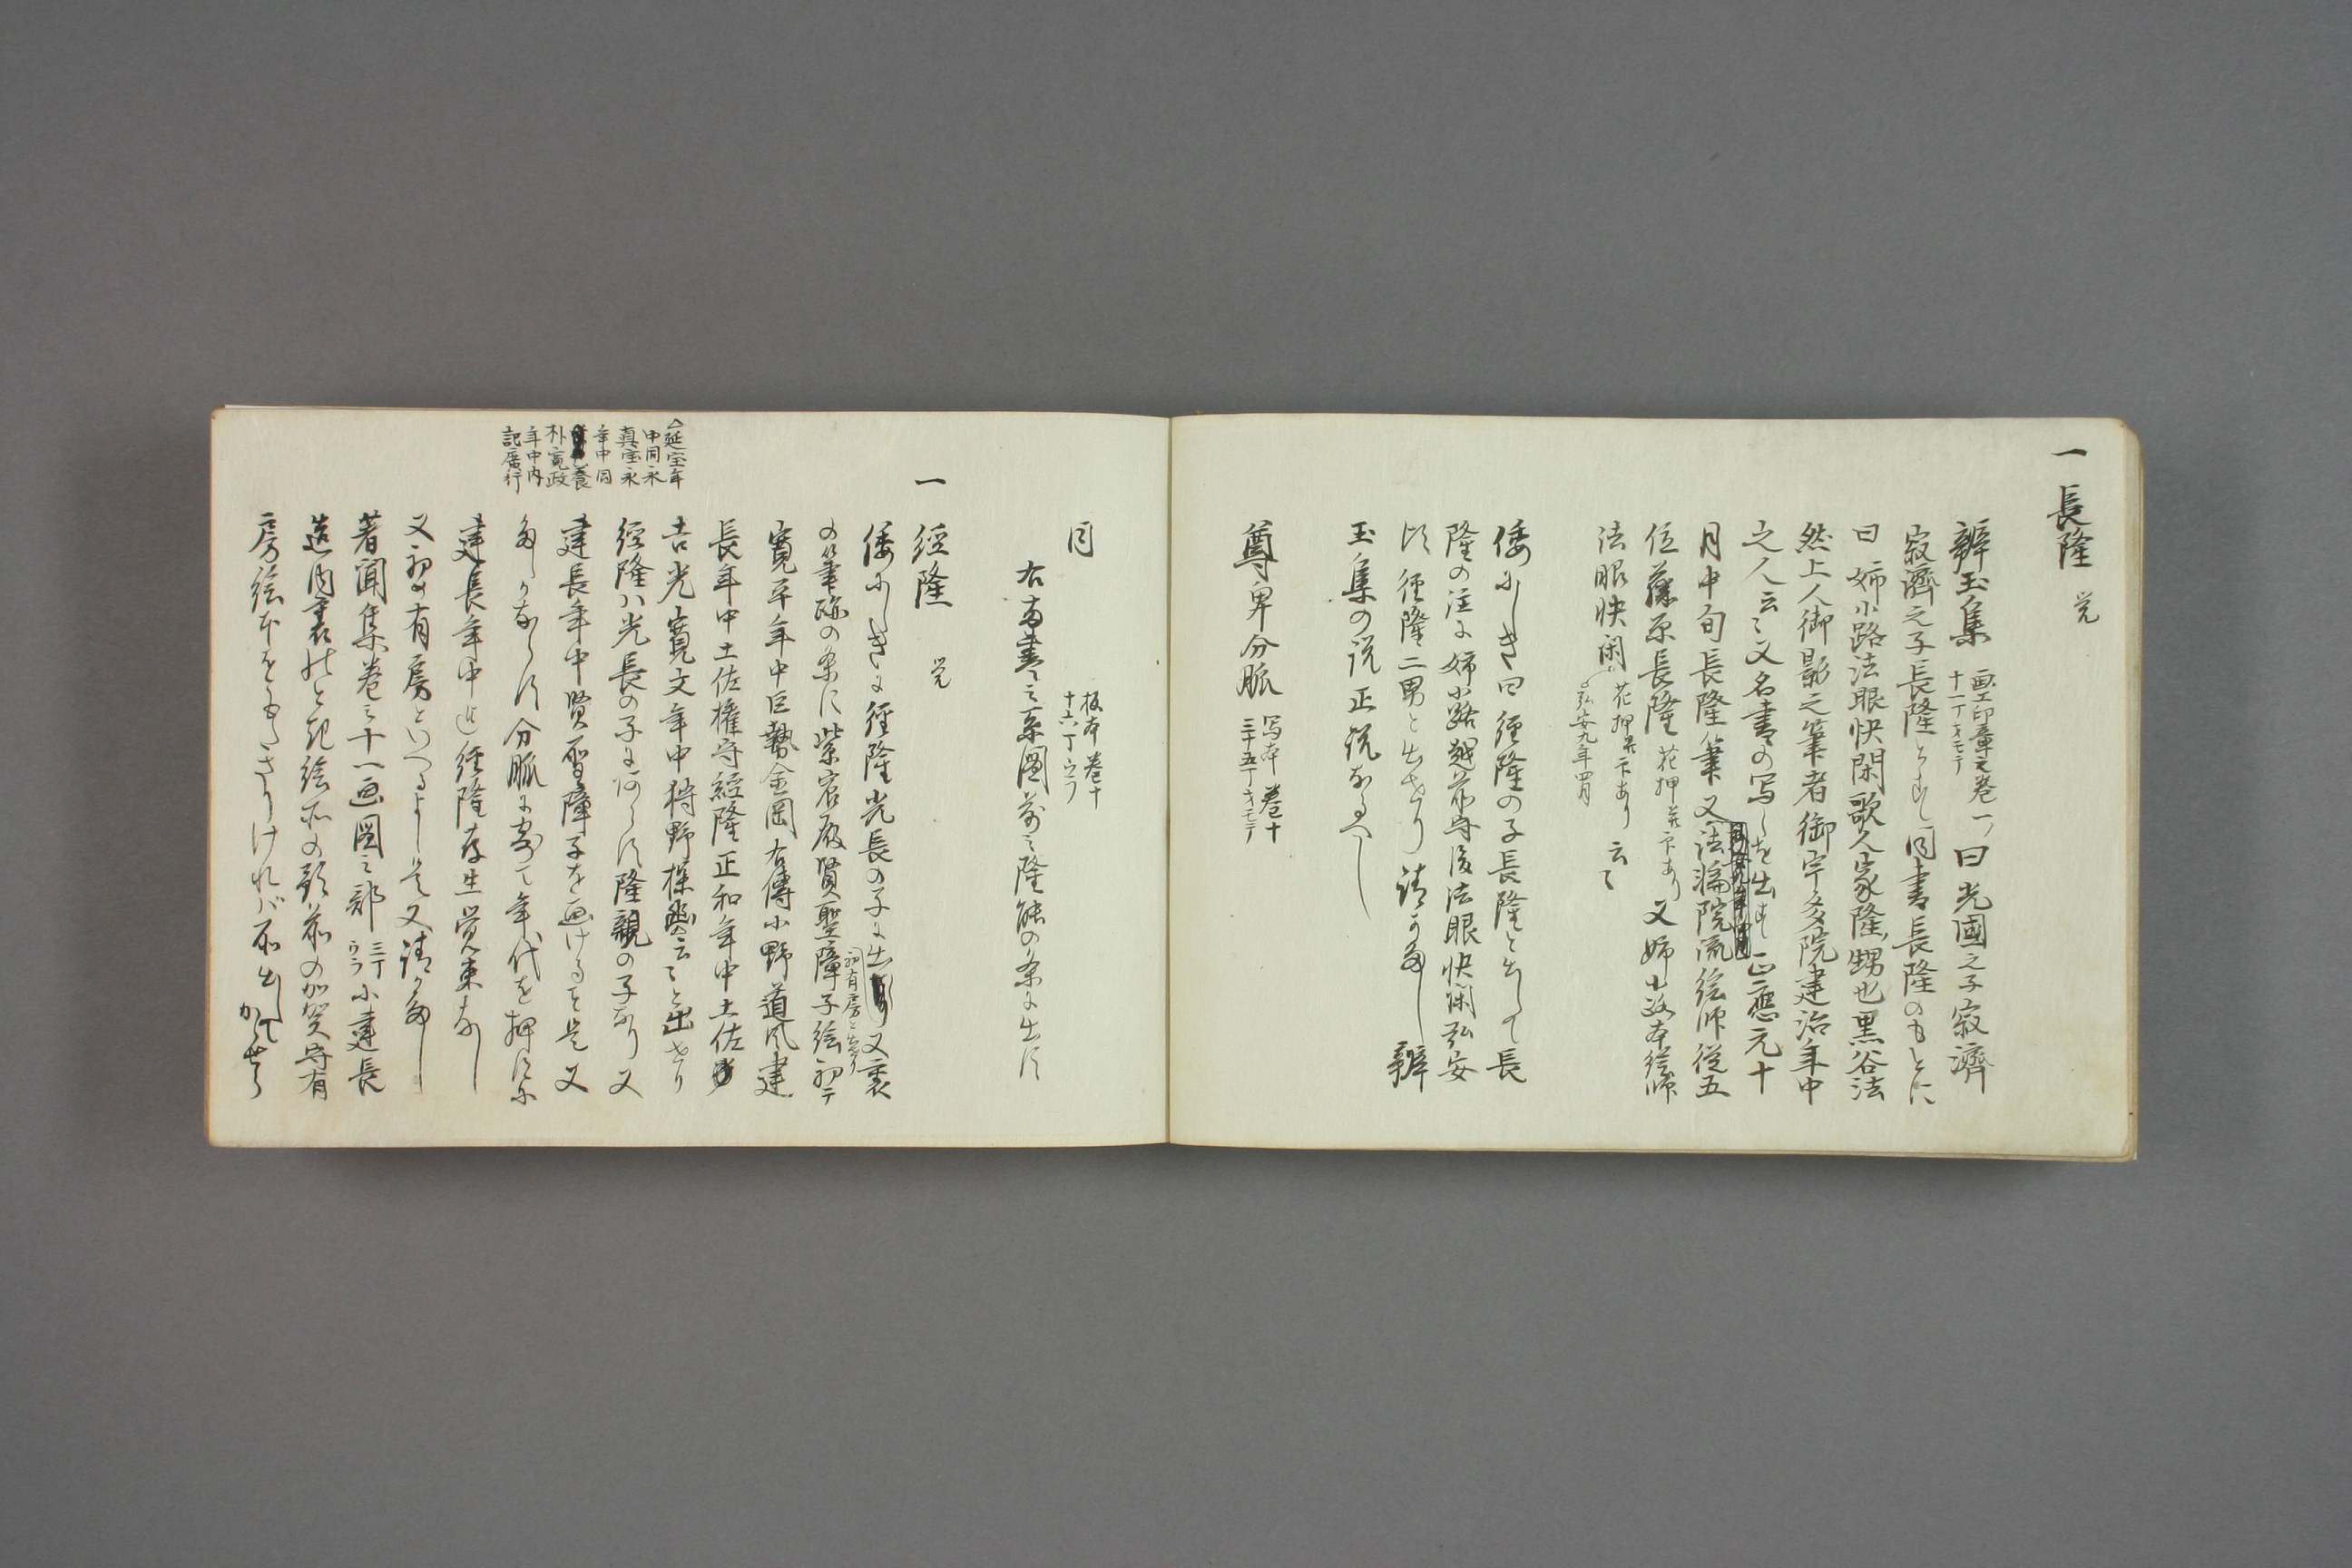 一 長隆 覚
辨玉集 画工印章之巻 十一丁オモテ 曰光國之子寂濟
寂濟之子長隆とあり 同書長隆のもとに
曰 姉小路法眼快閑歌人家隆甥也黒谷法
然上人御影之筆者御宇多院建治年中
之人云々又名書の写しを出す 正應元十
月中旬長隆筆又法論院流絵師従五
位藤原長隆 花押并下あり 又姉小路本絵師
法眼快閑 花押并下あり 云々
弘安九年四月
倭にしき曰經隆の子長隆と出して長
隆の注に姉小路越前守後法眼快閑弘安
比 經隆二男と出せり 辨
玉集の説正説なるへし
尊卑分脈 写本 巻十 三十五丁オモテ
同 板本 巻十 十六丁ウラ
右両書之系圖前之隆能の条に出に
一 経隆 覚
倭にしきに經隆光長の子に出 又裏
の筆跡の条に紫宸殿賢聖障子絵初テ
寛平年中巨勢金岡右傳小野道風建
長年中土佐權守經隆正和年中土佐
吉光寛文年中狩野探幽云々と出せり
△延宝年
中同永
真宝永
年中同
養
朴寛政
年中内
記廣行
初有房と出せり
經隆ハ光長の子にあらす隆親の子なり又
建長年中賢聖障子を画けること覚 又
分脈に寄て年代を押に
建長年中迄經隆存生覚束なし
又初め有房といへるよし
著聞集巻之十一画図之部 三丁 ウラ に建長
造内裏のとき絵所の預前の加賀守有
房絵本を けれバ不出してかゝせ